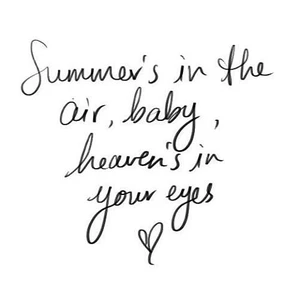 Summer's in the
air, baby,
heaven's in
your eyes